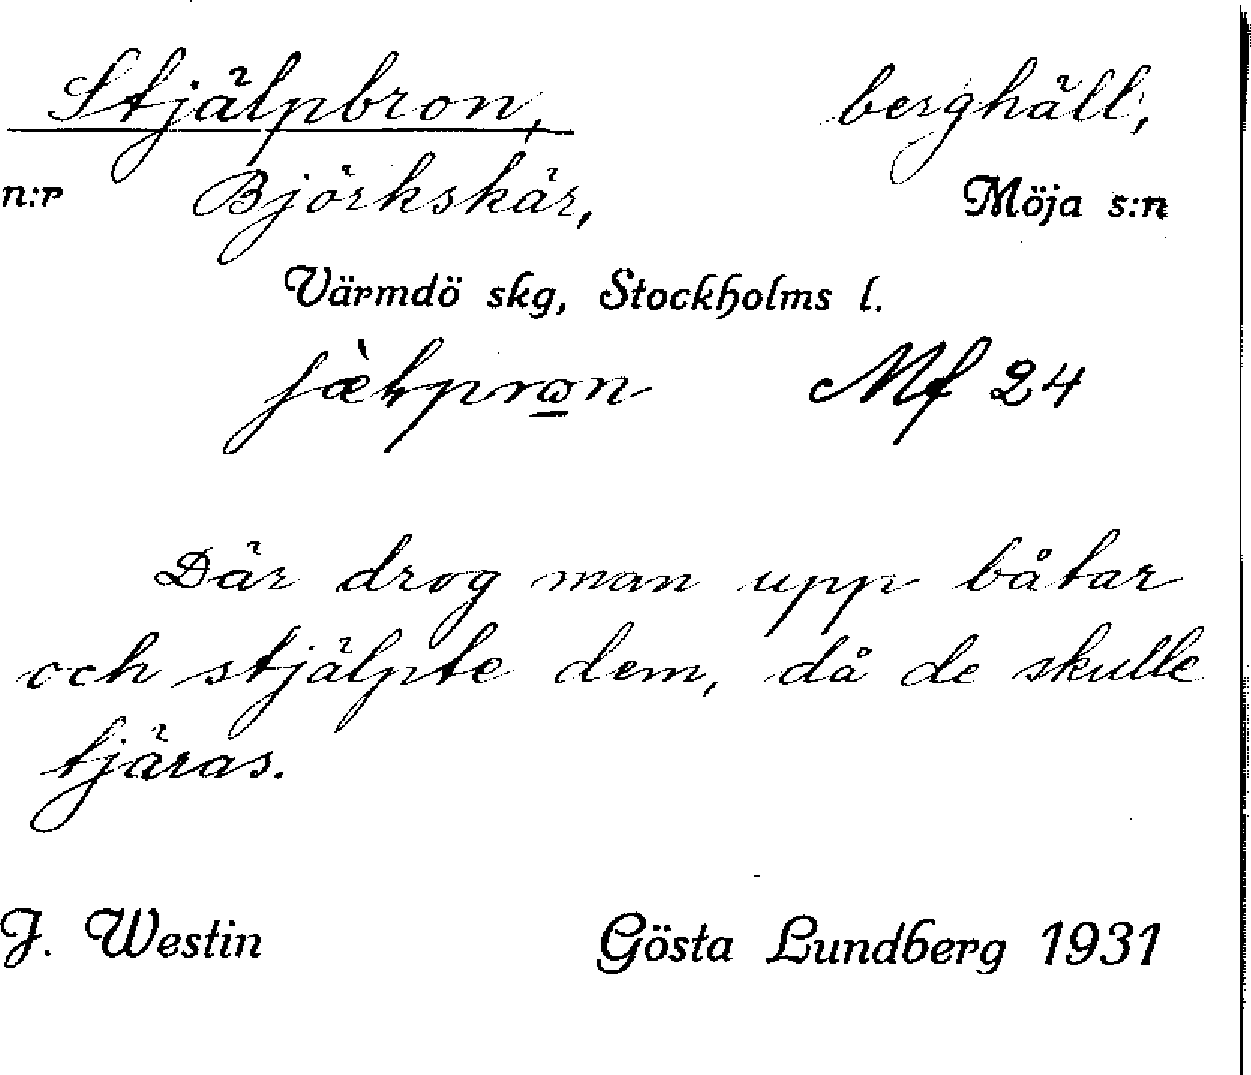 Stjälpbron, berghäll,
n:r Björkskär, Möja s:n
Värmdö skg, Stockholms l.
Mf 24
Där drog man upp båtar
och stjälpte dem, då de skulle
tjäras.
J. Westin Gösta Lundberg 1931